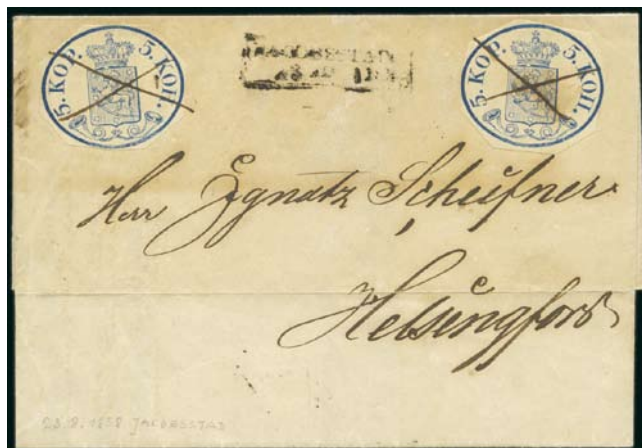 5. KOP. 5. КОП.
JACOBSTAD
5. KOP. 5. КОП.
Herr Ignatz Scheifner
Helsingfors
23.8.1858 JACOBSSTAD